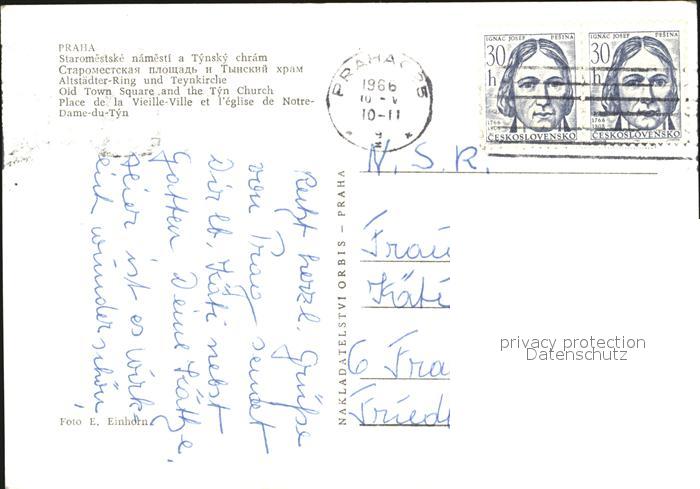 PRAHA
Staroměstské náměstí a Týnský chrám
Староместская площадь и Тынский храм
Altstädter-Ring und Teynkirche
Old Town Square and the Týn Church
Place de la Vieille-Ville et l'église de Notre-
Dame-du-Týn
PRAHA 25
1966
10 - V
10-11
IGNÁC JOSEF PEŠINA
30
h
1766
ČESKOSLOVENSKO
IGNÁC JOSEF PEŠINA
30
h
1766
ČESKOSLOVENSKO
N. S. R.
Frau
Käti
6 Fra
Fried
privacy protection
Datenschutz
NAKLADATELSTVÍ ORBIS - PRAHA
Recht herzl. Grüße
von Prag sendet
Dir lb. Käti nebst
Gatten Deine Kätze.
hier ist es wirk-
lich wunderschön,
Foto E. Einhorn